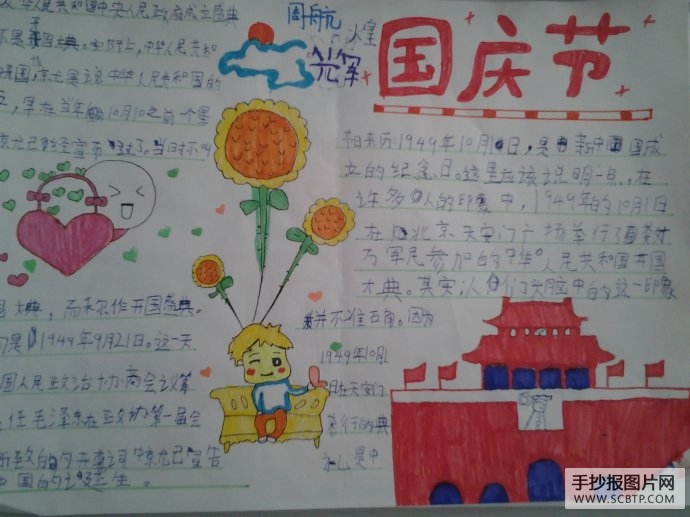 国庆节
周航
煌
光军
节日来历:1949年10月1日,是新中国成
立的纪念日。这里应该说明一点,在
许多人的印象中,1949年的10月1日
在北京天安门广场举行了
万军民参加的中华人民共和国开国
大典。其实,人们头脑中的这一印象
并不准石角。因为
1949年10月1
日在天安门
举行的典
礼是中
华人民共和国中央人民政府成立盛典
不是开国大典。实际上,中华人民共和
开国,京尤是说中华人民共和国的
立,早在当年10月1日之前一个星
京尤已经宣布过了。当时不叫
大典,而称作开国盛典。
间是1949年9月21日。这一天
国人民政治协商会议第
任毛泽东在政协第一届会
所致的开幕词中京尤已宣告
中国的诞生。
手抄报图片网
WWW.SCBTP.COM